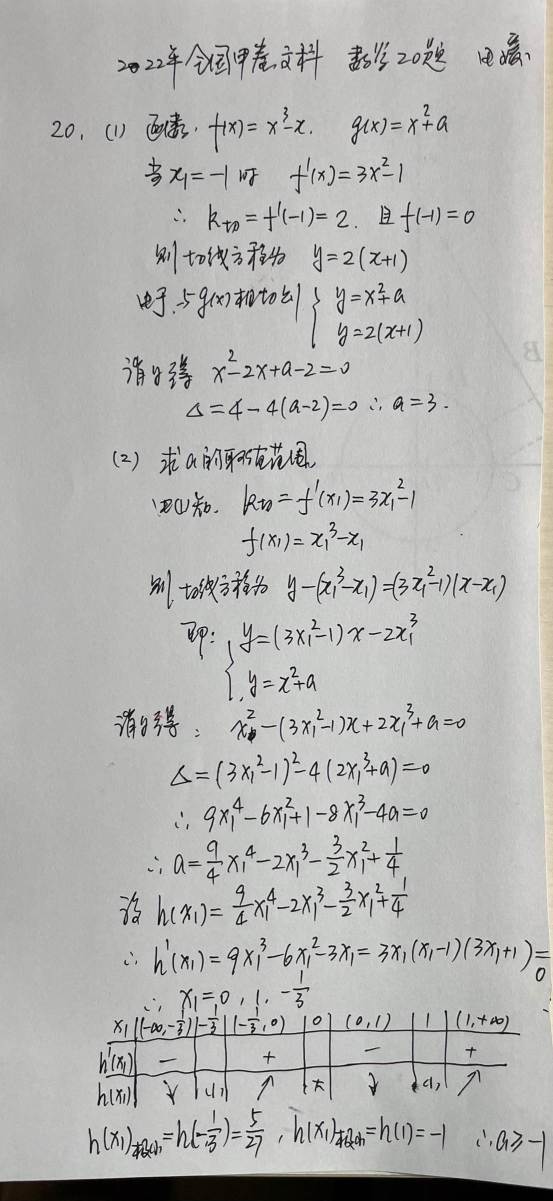 2022年全国甲卷文科 数学20题
20. (1) 函数: f(x)=x³-x. g(x)=x²+a
当x₁=-1时 f'(x)=3x²-1
∴ k切=f'(-1)=2. 且f(-1)=0
则切线方程为 y=2(x+1)
由于与g(x)相切则 { y=x²+a
y=2(x+1)
消y得 x²-2x+a-2=0
Δ=4-4(a-2)=0 ∴a=3.
(2) 求a的取值范围
由(1)知. k切=f'(x₁)=3x₁²-1
f(x₁)=x₁³-x₁
则切线方程为 y-(x₁³-x₁)=(3x₁²-1)(x-x₁)
即: { y=(3x₁²-1)x-2x₁³
y=x²+a
消y得: x²-(3x₁²-1)x+2x₁³+a=0
Δ=(3x₁²-1)²-4(2x₁³+a)=0
∴ 9x₁⁴-6x₁²+1-8x₁³-4a=0
∴ a=9/4x₁⁴-2x₁³-3/2x₁²+1/4
设h(x₁)=9/4x₁⁴-2x₁³-3/2x₁²+1/4
∴ h'(x₁)=9x₁³-6x₁²-3x₁=3x₁(x₁-1)(3x₁+1)=0
∴ x₁=0, 1, -1/3
x₁ (-∞,-1/3) -1/3 (-1/3,0) 0 (0,1) 1 (1,+∞)
h'(x₁) - + - +
h(x₁) ↘ 小 ↗ 大 ↘ 小 ↗
h(x₁)极小=h(-1/3)=5/27, h(x₁)极小=h(1)=-1 ∴a≥-1